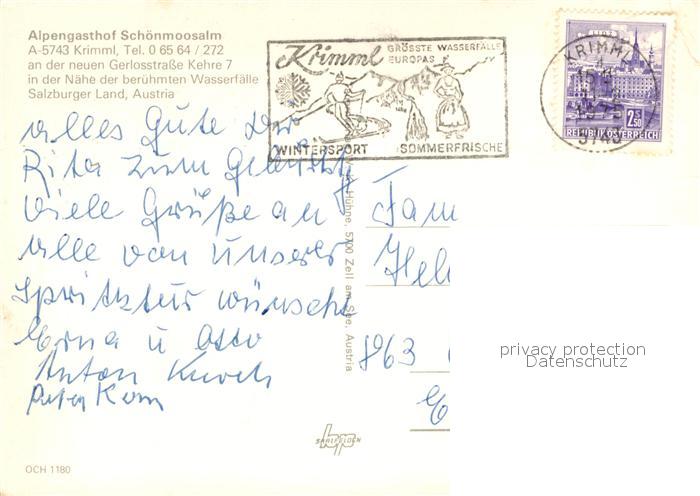 Alpengasthof Schönmoosalm
A-5743 Krimml, Tel. 0 65 64 / 272
an der neuen Gerlosstraße Kehre 7
in der Nähe der berühmten Wasserfälle
Salzburger Land, Austria
Krimml GRÖSSTE WASSERFÄLLE
EUROPAS
WINTERSPORT SOMMERFRISCHE
KRIMML
5743
LINZ
2.50
REPUBLIK ÖSTERREICH
alles Gute der
Rita zum Geburtst
viele Grüße an
alle von unserer
Spritztur wünsche
Erna u Otto
Anton
Peter Kern
Hühne, 5700 Zell am See, Austria
Fam
Hel
863
privacy protection
Datenschutz
SAALFELDEN
OCH 1180